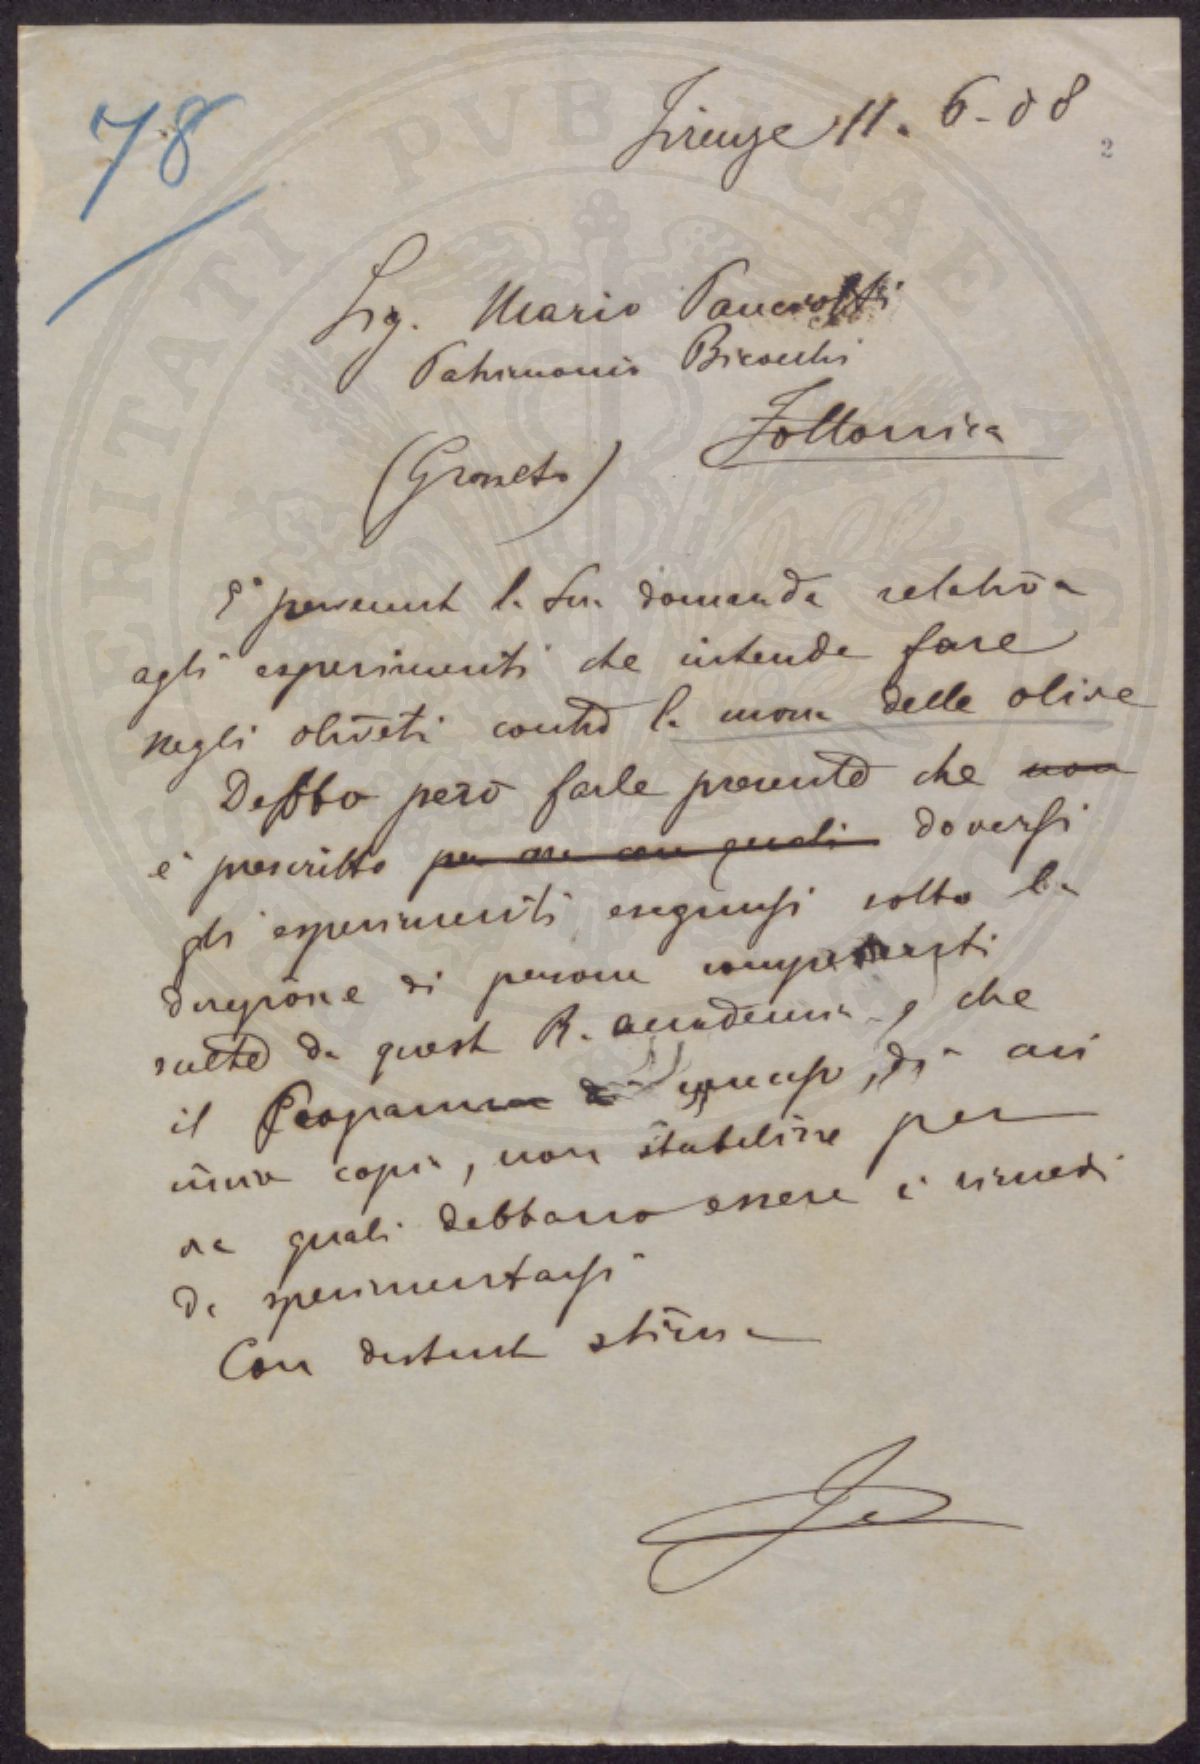 78
Firenze 11. 6-08
2
Sig. Mario Pancrosti
Patrimonio Bicocchi
Follonica
(Grosseto)
È pervenuta la Sua domanda relativa
agli esperimenti che intende fare
negli oliveti contro la mosca delle olive
Debbo però farle presente che non
è prescritto doversi
gli esperimenti eseguirsi sotto la
direzione di persone competenti
scelte da questa R. Accademia, e che
il Programma di concorso, di cui
unisco copia, non stabilisce per
ora quali debbano essere i rimedi
da sperimentarsi
Con distinta stima